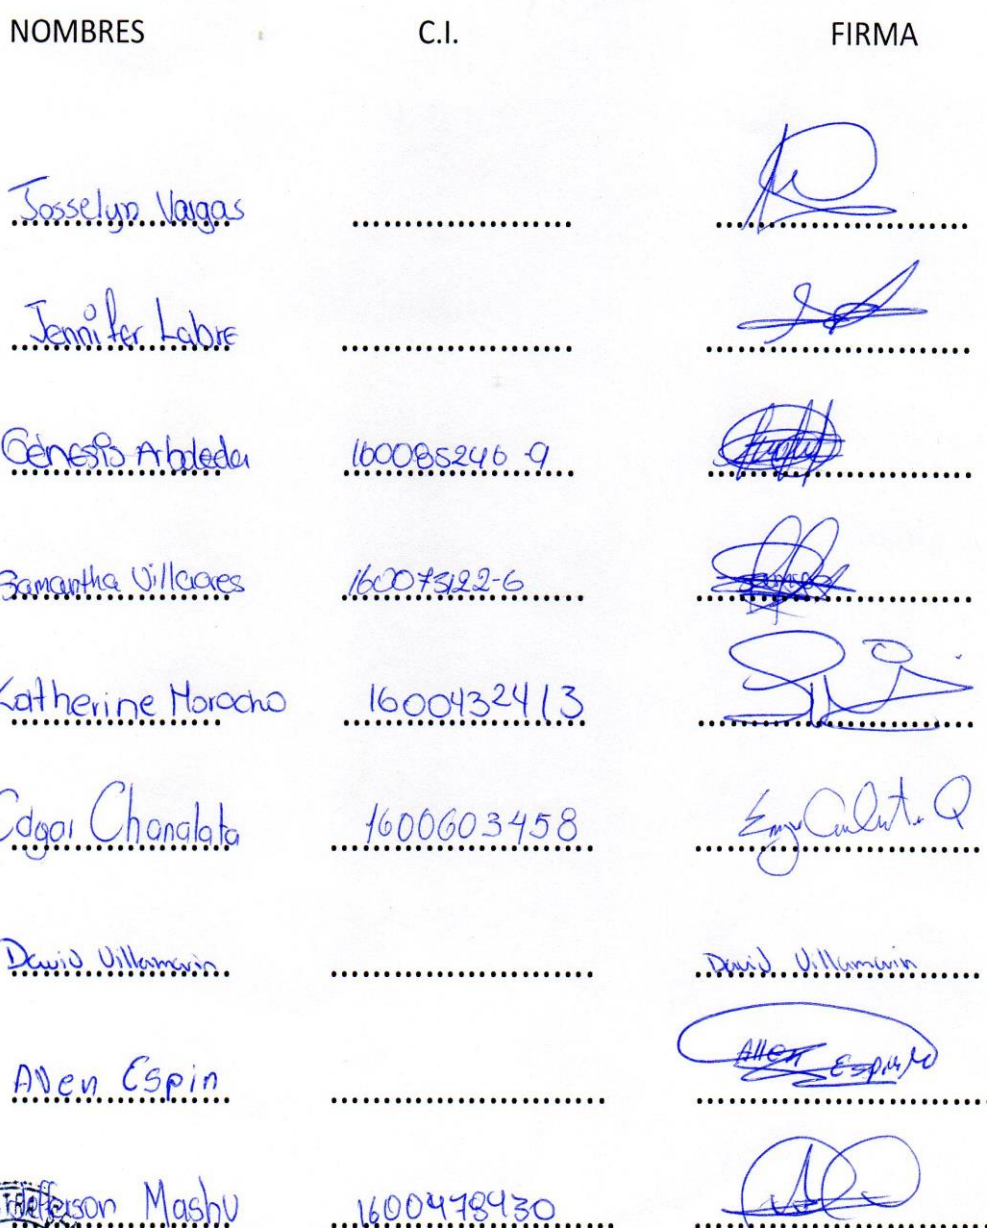 NOMBRES C.I. FIRMA
Josselyn Vargas
Jennifer Labre
Génesis Arboleda 160085246-9
Samantha Villacres 160073122-6
Katherine Morocho 1600432413
Edgar Chanalata 1600603458
David Villamarin David Villamarin
Allen Espin Allen Espin
Mashu 1600478430